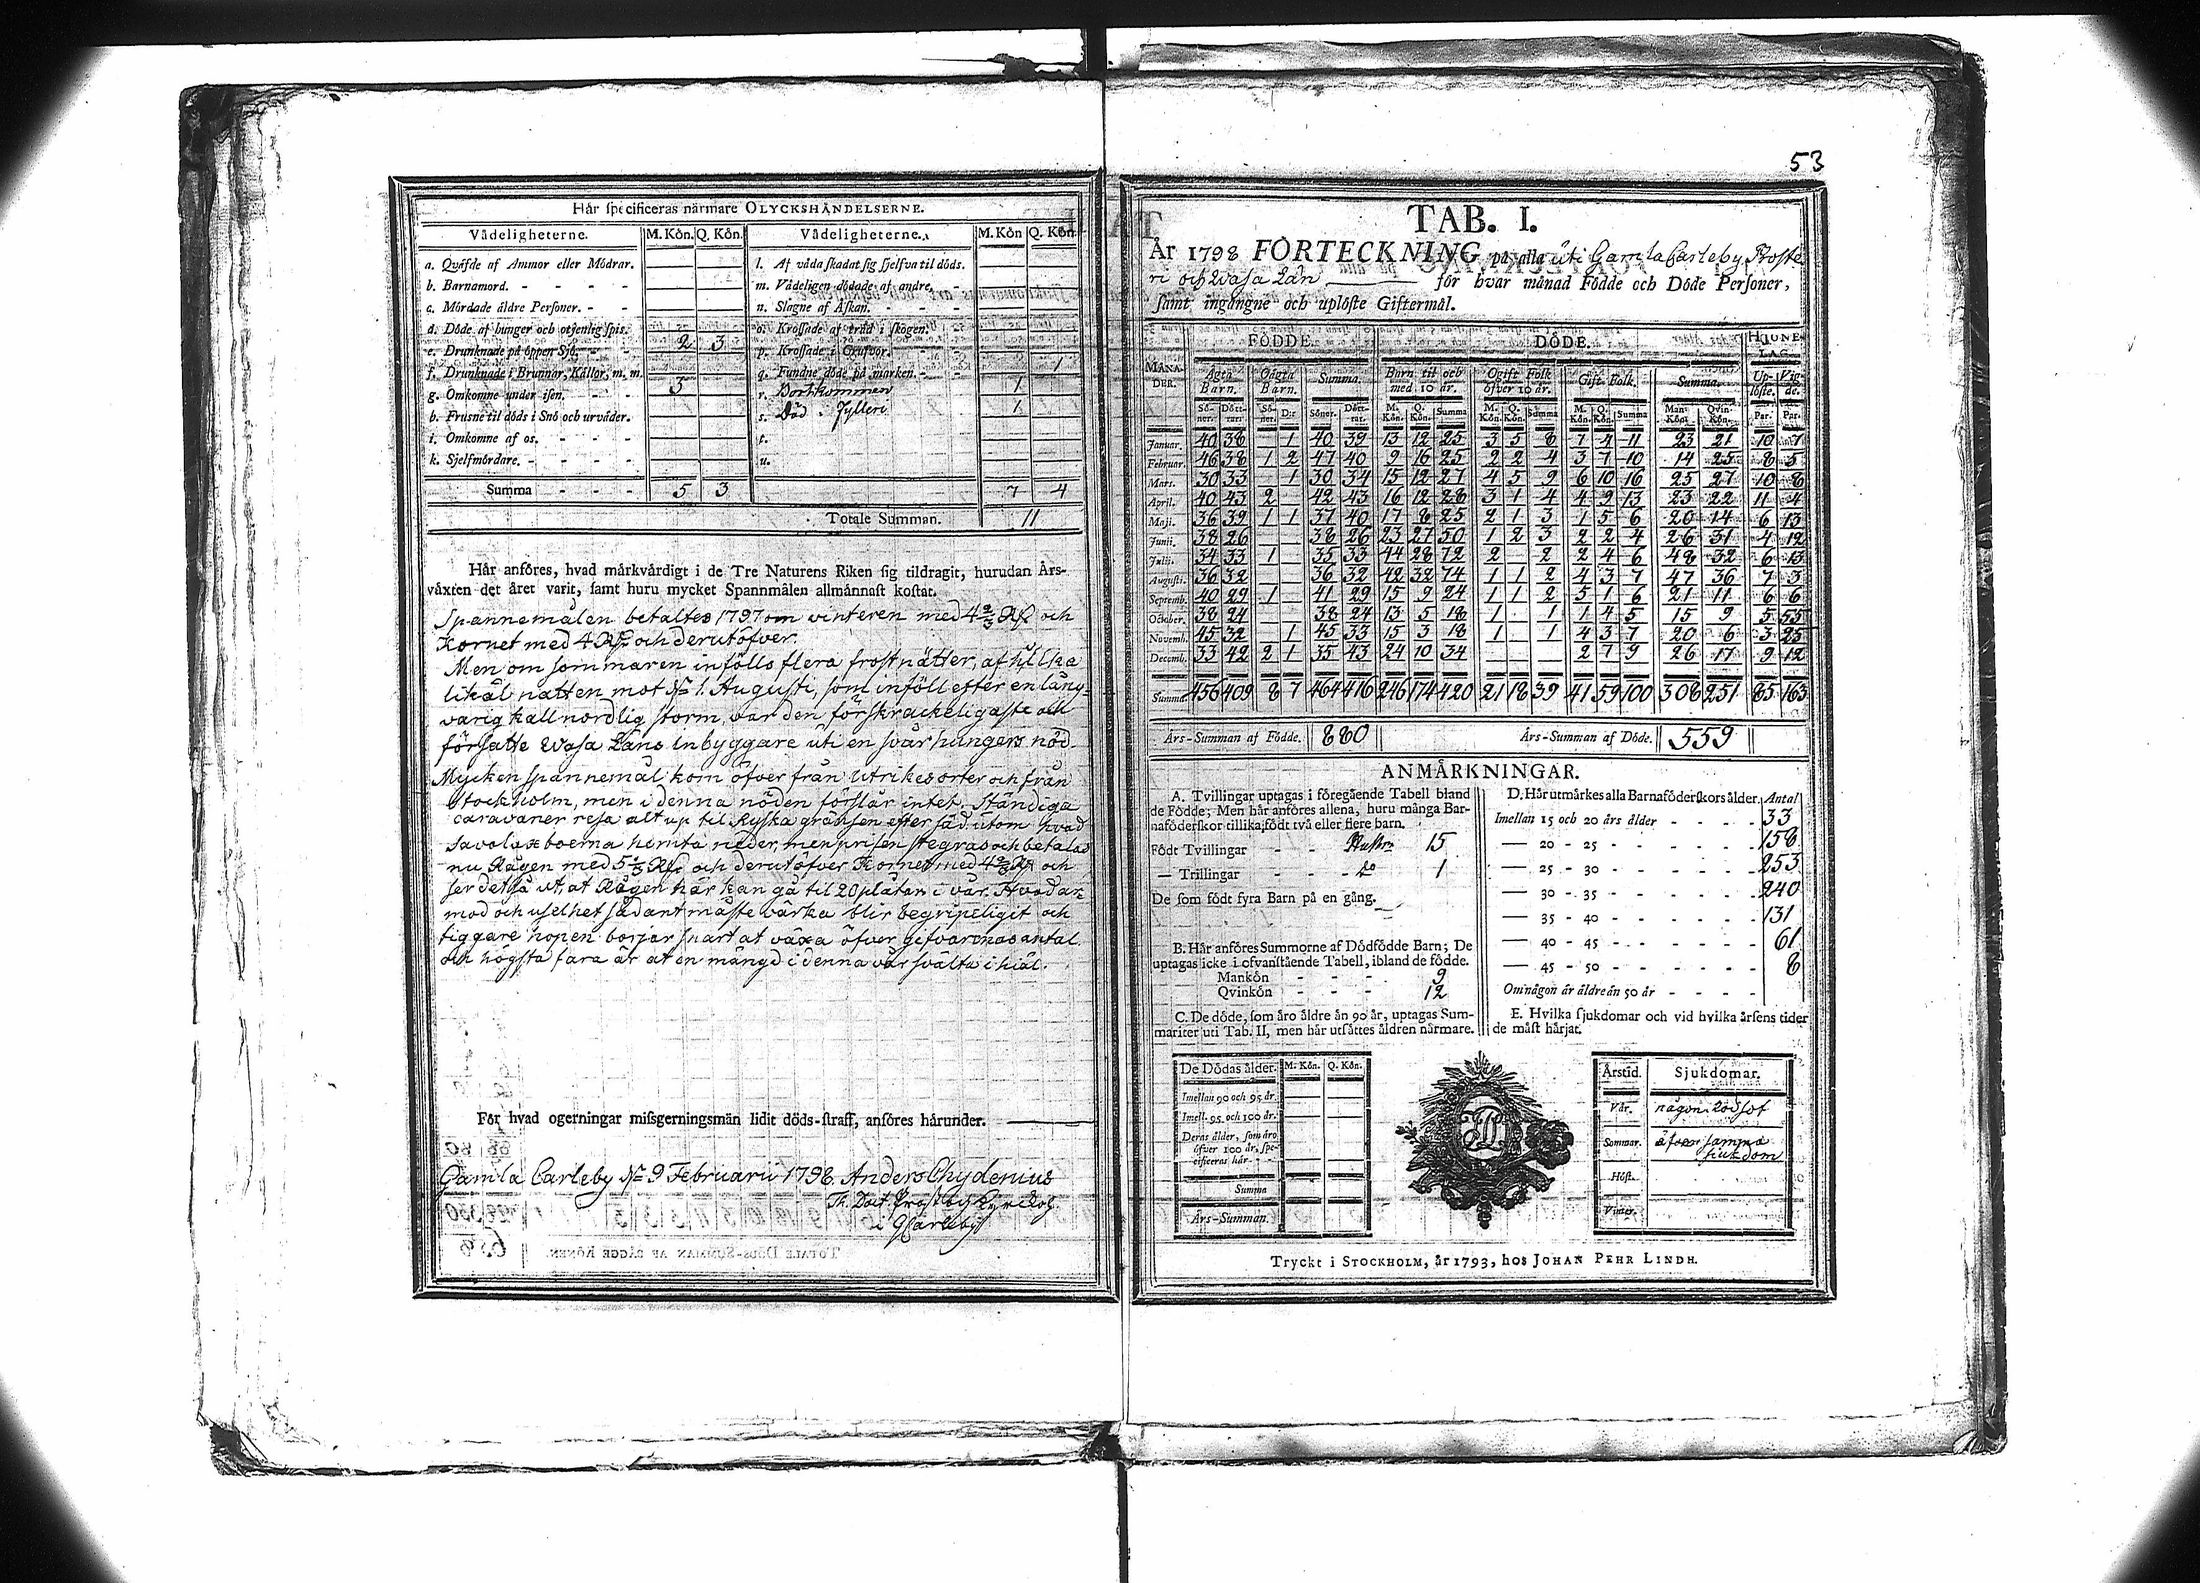 53
Här specificeras närmare OLYCKSHÄNDELSERNE.
Vådeligheterne. M. Kön. Q. Kön. Vådeligheterne. M. Kön Q. Kön.
a. Qväfde af Ammor eller Mödrar. l. Af våda skadat sig sjelfva til döds.
b. Barnamord. - - - - m. Vådeligen dödade af andre. -
c. Mördade äldre Personer. - - n. Slagne af Åskan. - - - -
d. Döde af hunger och otjenlig spis. o. Krossade af träd i skogen.
e. Drunknade på öppen Sjö. - - 2 3 p. Krossade i Grufvor. - -
f. Drunknade i Brunnar, Källor, m. m. q. Fundne döde på marken. - - 1
g. Omkomne under isen. - - 3 r. Bortkommen 1
h. Frusne til döds i Snö och urväder. s. Död i Fylleri 1
i. Omkomne af os. - - - t.
k. Sjelfmördare. - - - - u.
Summa - - - 5 3 7 4
Totale Summan. 11
Här anföres, hvad märkvärdigt i de Tre Naturens Riken sig tildragit, hurudan Års-
växten det året varit, samt huru mycket Spannmålen allmännast kostat.
Spannemålen betaltes 1797 om vinteren med 4 2/3 Rd och
Kornet med 4 Rd och derutöfver.
Men om sommaren inföllo flera frostnätter, af hvilka
likväl natten mot dn 1. Augusti, som inföll efter en lång-
varig kall nordlig storm, var den förskräckeligaste och
försatte Wasa Läns Inbyggare uti en svår hungers nöd.
Mycken spannemål kom öfver från Utrikes orter och från
Stockholm, men i denna nöden förslår intet. Ständiga
caravaner resa alt up til Ryska gränsen efter säd utom hvad
Savolax boerna hemta neder, men prisen stegras och betalas
nu Rågen med 5 1/3 Rd och derutöfver Kornet med 4 2/3 Rd och
ser det så ut, at Rågen här kan gå til 20 plåtar i vår. Hvad ar-
mod och uselhet sådant måste värka blir begripeligit och
tiggare hopen börjar snart at växa öfver gifvarenas antal.
och högsta fara är at en mängd i denna vår svälta i hiäl.
För hvad ogerningar missgerningsmän lidit döds-straff, anföres härunder.
Gamla Carleby dn 9 Februarii 1798. Anders Chydenius
Th. Doct. Prost och Kyrckoh.
i GCarleby
TAB. I.
År 1798 FÖRTECKNING på alla uti Gamla Carleby Proste
ri och Wasa Län för hvar månad Födde och Döde Personer,
samt ingångne och uplöste Giftermål.
MÅNA-DER. FÖDDE. DÖDE. HJONE-LAG.
Ägta Barn. Oägta Barn. Summa. Barn til och med 10 år. Ogift Folk öfver 10 år. Gift Folk. Summa. Up-löste. Vig-de.
Sö-ner. Dött-rar. Sö-ner. D:r Söner. Dött-rar. M. Kön. Q. Kön. Summa M. Kön. Q. Kön. Summa M. Kön. Q. Kön. Summa Man-Kön. Qvin-Kön. Par. Par.
Januar. 40 38 1 40 39 13 12 25 3 5 8 7 4 11 23 21 10 7
Februar. 46 38 1 2 47 40 9 16 25 2 2 4 3 7 10 14 25 8 5
Mars. 30 33 1 30 34 15 12 27 4 5 9 6 10 16 25 27 10 8
April. 40 43 2 42 43 16 12 28 3 1 4 4 9 13 23 22 11 4
Maji. 36 39 1 1 37 40 17 8 25 2 1 3 1 5 6 20 14 6 13
Junii. 38 26 38 26 23 27 50 1 2 3 2 2 4 26 31 4 12
Julii. 34 33 1 35 33 44 28 72 2 2 2 4 6 48 32 6 13
Augusti. 36 32 36 32 42 32 74 1 1 2 4 3 7 47 36 7 3
Septemb. 40 29 1 41 29 15 9 24 1 1 2 5 1 6 21 11 6 6
October. 38 24 38 24 13 5 18 1 1 1 4 5 15 9 5 55
Novemb. 45 32 1 45 33 15 3 18 1 1 4 3 7 20 6 3 25
Decemb. 33 42 2 1 35 43 24 10 34 2 7 9 26 17 9 12
Summa. 456 409 8 7 464 416 246 174 420 21 18 39 41 59 100 308 251 85 163
Års-Summan af Födde. 880 Års-Summan af Döde. 559
ANMÄRKNINGAR.
A. Tvillingar uptagas i föregående Tabell bland
de Födde; Men här anföres allena, huru många Bar-
naföderskor tillika födt två eller flere barn.
Födt Tvillingar - - Hustrur 15
— Trillingar - - - do 1
De som födt fyra Barn på en gång.
B. Här anföres Summorne af Dödfödde Barn; De
uptagas icke i ofvanstående Tabell, ibland de födde.
Mankön - - - 9
Qvinkön - - - 12
C. De döde, som äro äldre än 90 år, uptagas Sum-
mariter uti Tab. II, men här utsättes åldren närmare.
D. Här utmärkes alla Barnaföderskors ålder. Antal
Imellan 15 och 20 års ålder - - - - 33
— 20 - 25 - - - - - - 158
— 25 - 30 - - - - - - 253
— 30 - 35 - - - - - - 240
— 35 - 40 - - - - - - 131
— 40 - 45 - - - - - - 61
— 45 - 50 - - - - - - 8
Om någon är äldre än 50 år - - - -
E. Hvilka sjukdomar och vid hvilka årsens tider
de mäst härjat.
De Dödas ålder. M. Kön. Q. Kön.
Imellan 90 och 95 år.
Imell. 95 och 100 år.
Deras ålder, som äro
öfver 100 år, spe-
cificeras här - -
Summa
Års-Summan.
Årstid. Sjukdomar.
Vår. någon Rödsot
Sommar. äfven samma
siukdom
Höst.
Vinter.
Tryckt i STOCKHOLM, år 1793, hos JOHAN PEHR LINDH.